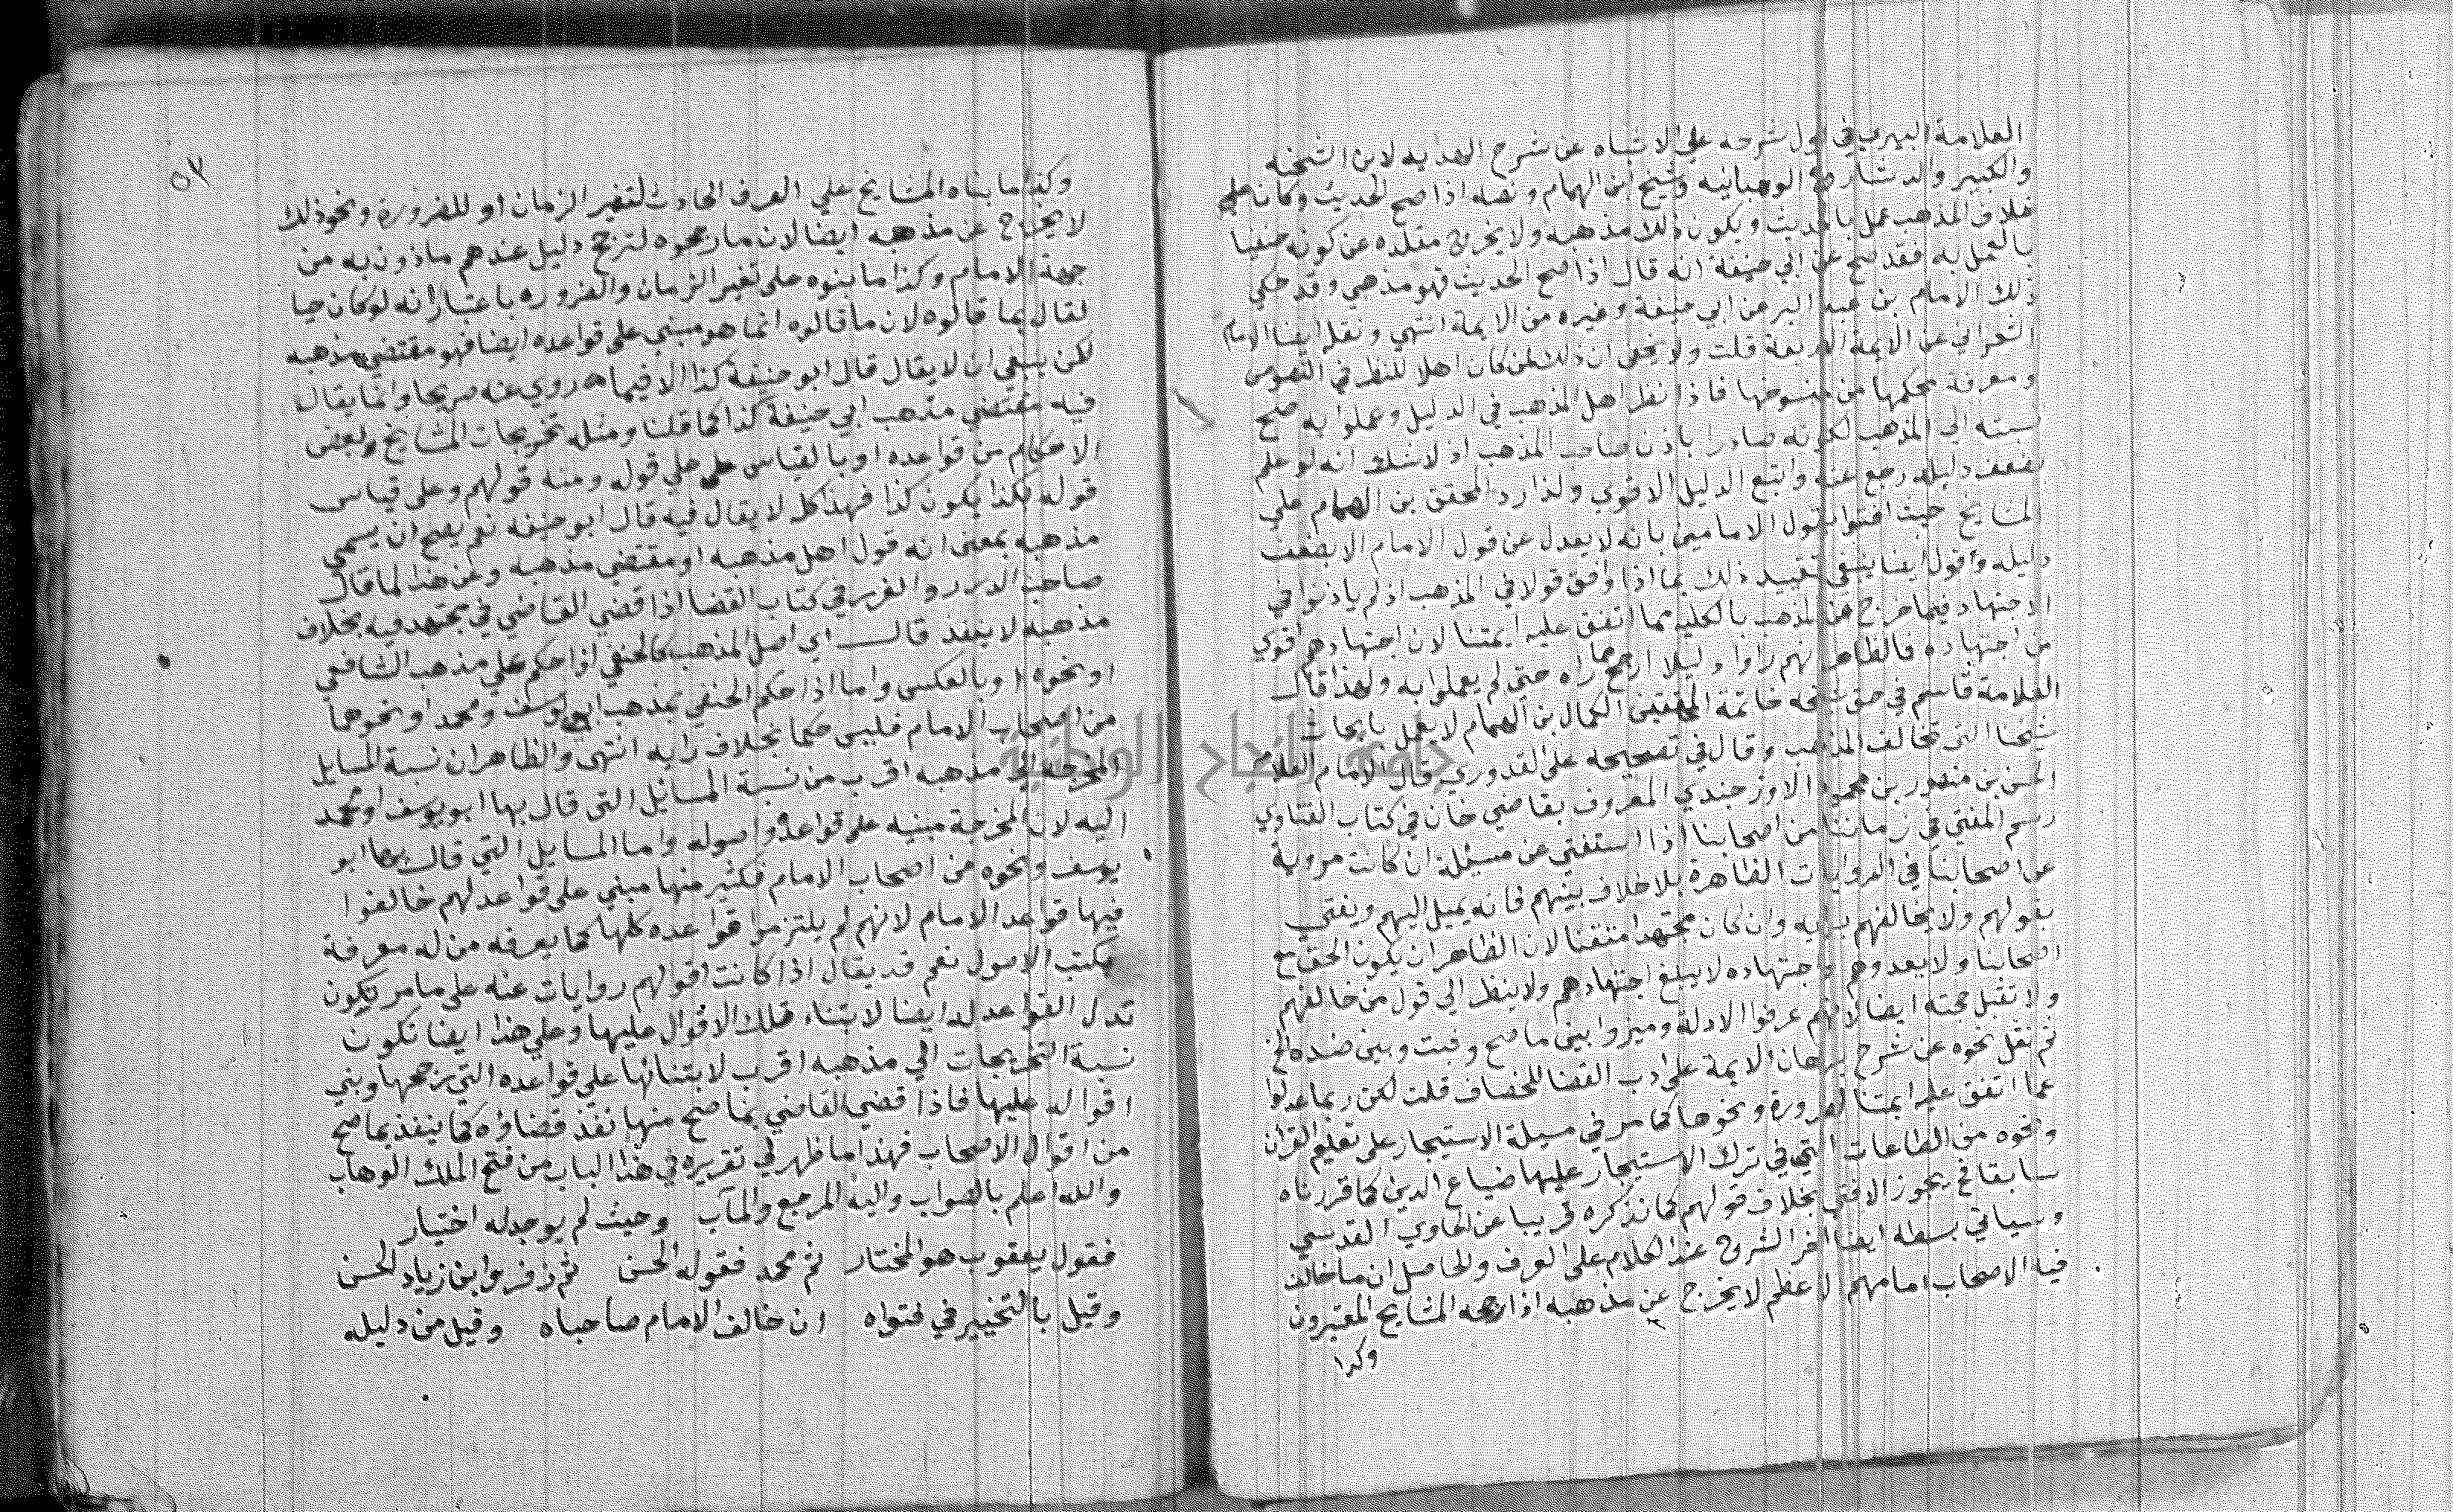 العلامة البيري في اول شرحه علي الاشباه عن شرح الهدايه لابن الشحنه
والكبير والد شارح الوهبانيه وشيخ ابن الهمام ونصه اذا صح الحديث وكان علي
خلاف المذهب عمل بالحديث ويكون ذلك مذهبه ولا يخرج مقلده عن كونه حنفيا
بالعمل به فقد صح عن ابي حنيفة انه قال اذا صح الحديث فهو مذهبي وقد حكي
ذلك الامام بن عبد البر عن ابي حنيفة وغيره من الايمة انتهي ونقله ايضا الامام
الشعراني عن الايمة الاربعة قلت ولا يخفي ان ذلك لمن كان اهلا للنظر في النصوص
ومعرفة محكمها من منسوخها فاذا نظر اهل المذهب في الدليل وعملوا به صح
نسبته الي المذهب لكونه صادرا باذن صاحب المذهب اذ لا شك انه لو علم
بضعف دليله رجع عنه واتبع الدليل الاقوي ولذا رد المحقق بن الهمام علي
المشايخ حيث افتوا بقول الامامين بانه لا يعدل عن قول الامام الا بضعف
دليله واقول ايضا ينبغي تقييد ذلك بما اذا وافق قولا في المذهب اذ لم ياذنوا في
الاجتهاد فيما خرج عن المذهب بالكلية مما اتفق عليه ايمتنا لان اجتهادهم اقوي
من اجتهاده فالظاهر انهم راوا دليلا ارجح مما راه حتي لم يعملوا به ولهذا قال
العلامة قاسم في حق شيخه خاتمة المحققين الكمال بن الهمام لا يعمل بابحاث
شيخنا التي تخالف المذهب وقال في تصحيحه علي القدوري قال الامام العلامه
الحسن بن منصور بن محمود الاوزجندي المعروف بقاضي خان في كتاب الفتاوي
رسم المفتي في زماننا من اصحابنا اذا استفتي عن مسئلة ان كانت مروية
عن اصحابنا في الروايات الظاهرة بلا خلاف بينهم فانه يميل اليهم ويفتي
بقولهم ولا يخالفهم برايه وان كان مجتهدا متقنا لان الظاهر ان يكون الحق مع
اصحابنا ولا يعدوهم واجتهاده لا يبلغ اجتهادهم ولا ينظر الي قول من خالفهم
ولا تقبل حجته ايضا لانهم عرفوا الادلة وميزوا بين ما صح وثبت وبين ضده الخ
ثم نقل نحوه عن شرح برهان الايمة علي ادب القضا للخصاف قلت لكن ربما عدلوا
عما اتفق عليه ايمتنا لضرورة ونحوها كما مر في مسيلة الاستيجار علي تعليم القران
ونحوه من الطاعات التي في ترك الاستيجار عليها ضياع الدين كما قررناه
سابقا فح يجوز الافتي بخلاف قولهم كما نذكره قريبا عن الحاوي القدسي
وسياتي بسطه ايضا اخر الشروح عند الكلام علي العرف والحاصل ان ما خالف
فيه الاصحاب امامهم الاعظم لا يخرج عن مذهبه اذا رجحه المشايخ المعتبرون
وكذا
٥٢
وكذا ما بناه المشايخ علي العرف الحادث لتغير الزمان او للضرورة ونحو ذلك
لا يخرج عن مذهبه ايضا لان ما رجحوه لترجح دليل عندهم ماذون به من
جهة الامام وكذا ما بنوه علي تغير الزمان والضروره باعتبار انه لو كان حيا
لقال بما قالوه لان ما قالوه انما هو مبني علي قواعده ايضا فهو مقتضي مذهبه
لكن ينبغي ان لا يقال قال ابو حنيفة كذا الا فيما روي عنه صريحا وانما يقال
فيه مقتضي مذهب ابي حنيفة كذا كما قلنا ومثله تخريجات المشايخ بعض
الاحكام من قواعده او بالقياس علي قوله ومنه قولهم وعلي قياس
قوله بكذا يكون كذا فهذا كله لا يقال فيه قال ابو حنيفه نعم يصح ان يسمي
مذهبه بمعني انه قول اهل مذهبه او مقتضي مذهبه وعن هذا لما قال
صاحب الدرر والغرر في كتاب القضا اذا قضي القاضي في مجتهد فيه بخلاف
مذهبه لا ينفذ قال اي اصل المذهب كالحنفي اذا حكم علي مذهب الشافعي
او نحوه او بالعكس واما اذا حكم الحنفي بمذهب ابي يوسف ومحمد او نحوهما
من اصحاب الامام فليس حكما بخلاف رايه انتهي والظاهر ان نسبة المسايل
المخرجة الي مذهبه اقرب من نسبة المسائل التي قال بها ابو يوسف او محمد
اليه لان المخرجة مبنيه علي قواعده واصوله واما المسايل التي قال بها ابو
يوسف ونحوه من اصحاب الامام فكثير منها مبني علي قواعد لهم خالفوا
فيها قواعد الامام لانهم لم يلتزموا قواعده كلها كما يعرفه من له معرفة
بكتب الاصول نعم قد يقال اذا كانت اقوالهم روايات عنه علي ما مر تكون
تلك القواعد له ايضا لابتناء تلك الاقوال عليها وعلي هذا ايضا تكون
نسبة التخريجات الي مذهبه اقرب لابتنائها علي قواعده التي رجحها وبني
اقواله عليها فاذا قضي القاضي بما صح منها نفذ قضاؤه كما ينفذ بما صح
من اقوال الاصحاب فهذا ما ظهر لي تقريره في هذا الباب من فتح الملك الوهاب
والله اعلم بالصواب واليه المرجع والمآب وحيث لم يوجد له اختيار
فقول يعقوب هو المختار ثم محمد فقوله الحسن ثم زفر وابن زياد الحسن
وقيل بالتخيير في فتواه ان خالف الامام صاحباه وقيل من دليله
جامعة النجاح الوطنية